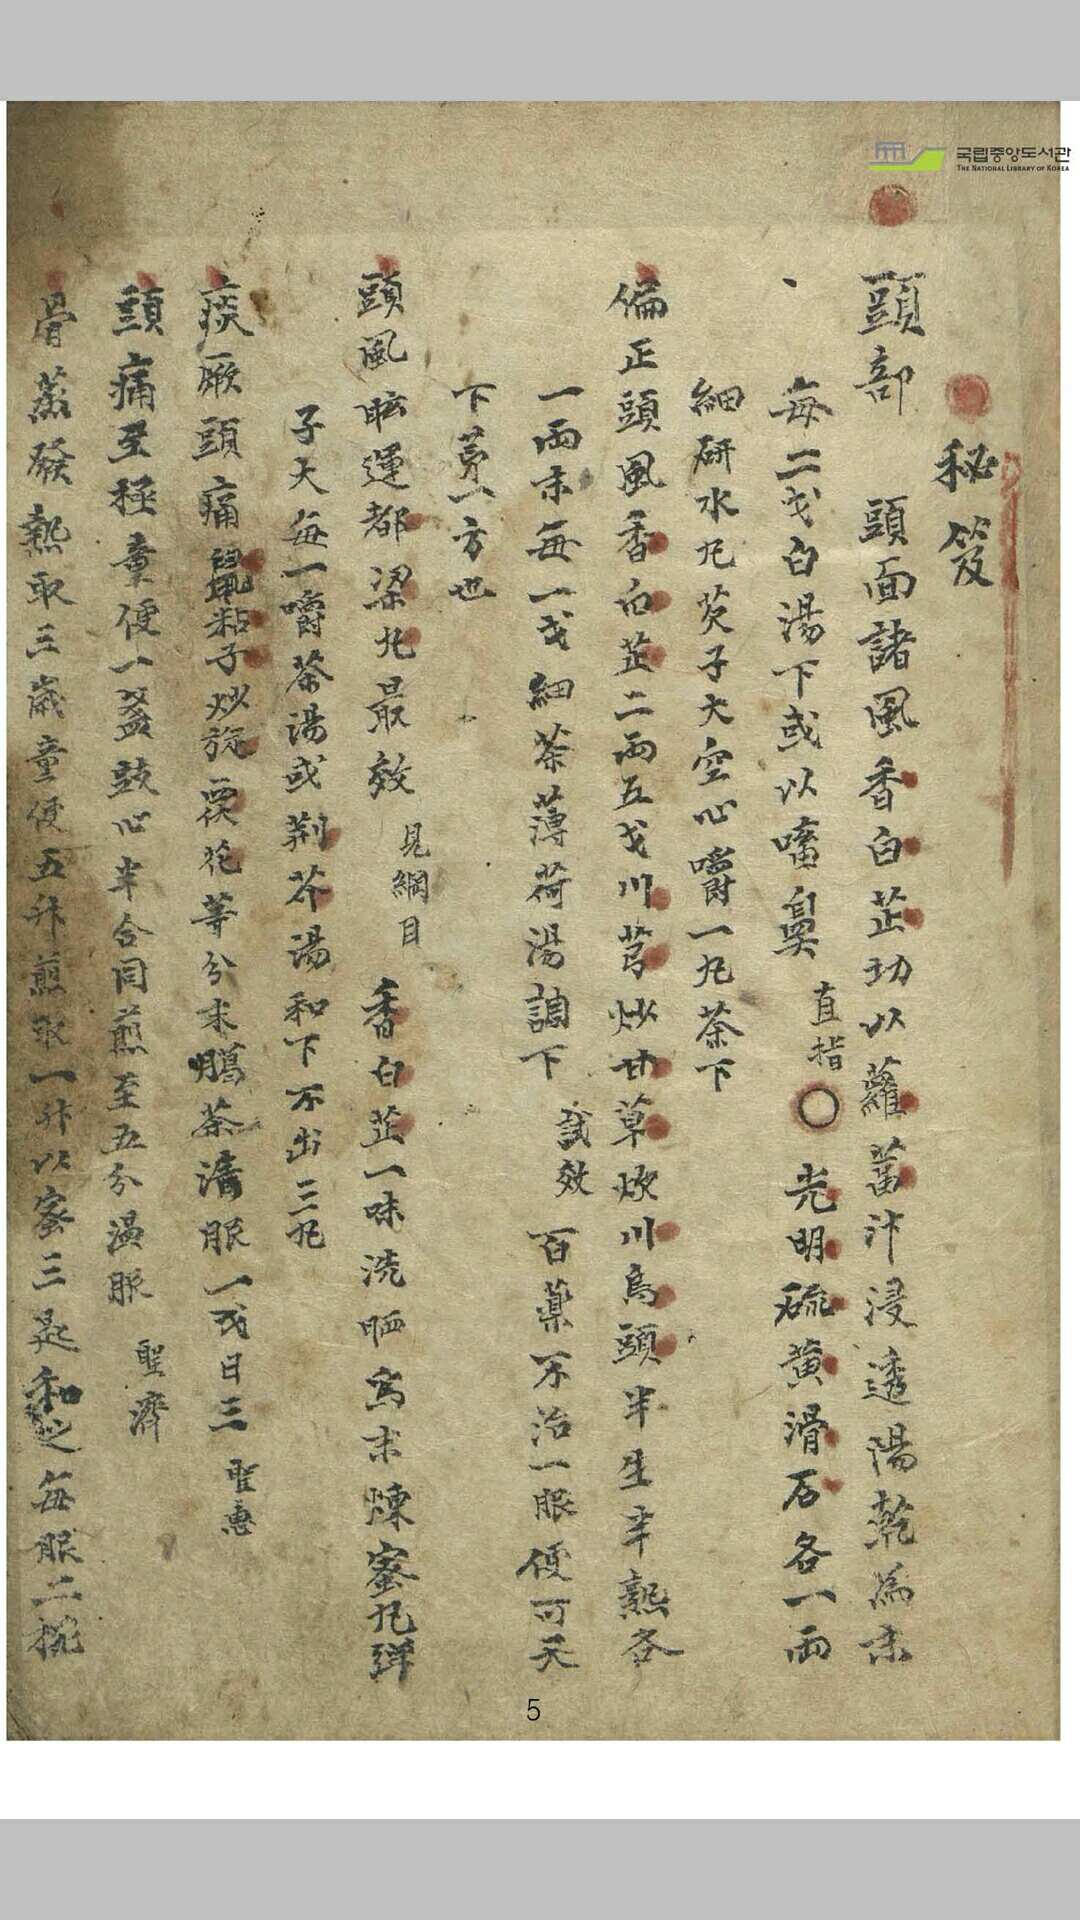 국립중앙도서관
THE NATIONAL LIBRARY OF KOREA
秘笈
頭部 頭面諸風香白芷切以蘿葍汁浸透陽乾為末
每二戈白湯下或以㗜鼻 直指 ○ 光明硫黃滑石各一兩
細研水丸芡子大空心嚼一丸茶下
偏正頭風香白芷二兩五戈川芎炒甘草炒川烏頭半生半熟各
一兩末每一戈細茶薄荷湯調下 試效 百藥不治一服便可天
下第一方也
頭風眩運都梁丸最效 見綱目 香白芷一味洗晒為末煉蜜丸彈
子大每一嚼茶湯或荊芥湯和下不出三丸
痰厥頭痛鼠粘子炒旋葍花等分末臈茶清服一戈日三 聖惠
頭痛至極童便一盞豉心半合同煎至五分溫服 聖濟
骨蒸發熱取三歲童便五升煎取一升以蜜三匙和之每服二椀
5